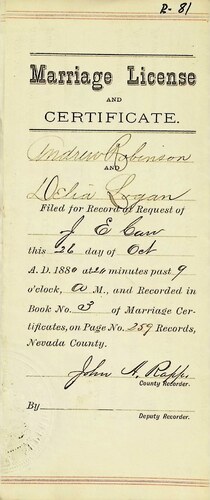 R-81
Marriage License
AND
CERTIFICATE.
Andrew Robinson
AND
Delia Logan
Filed for Record at Request of
J E Carr
this 26 day of Oct
A. D. 1880 at 20 minutes past 9
o'clock, A M., and Recorded in
Book No. 3 of Marriage Cer-
tificates, on Page No. 259 Records,
Nevada County.
John A. Rapp.
County Recorder.
By
Deputy Recorder.